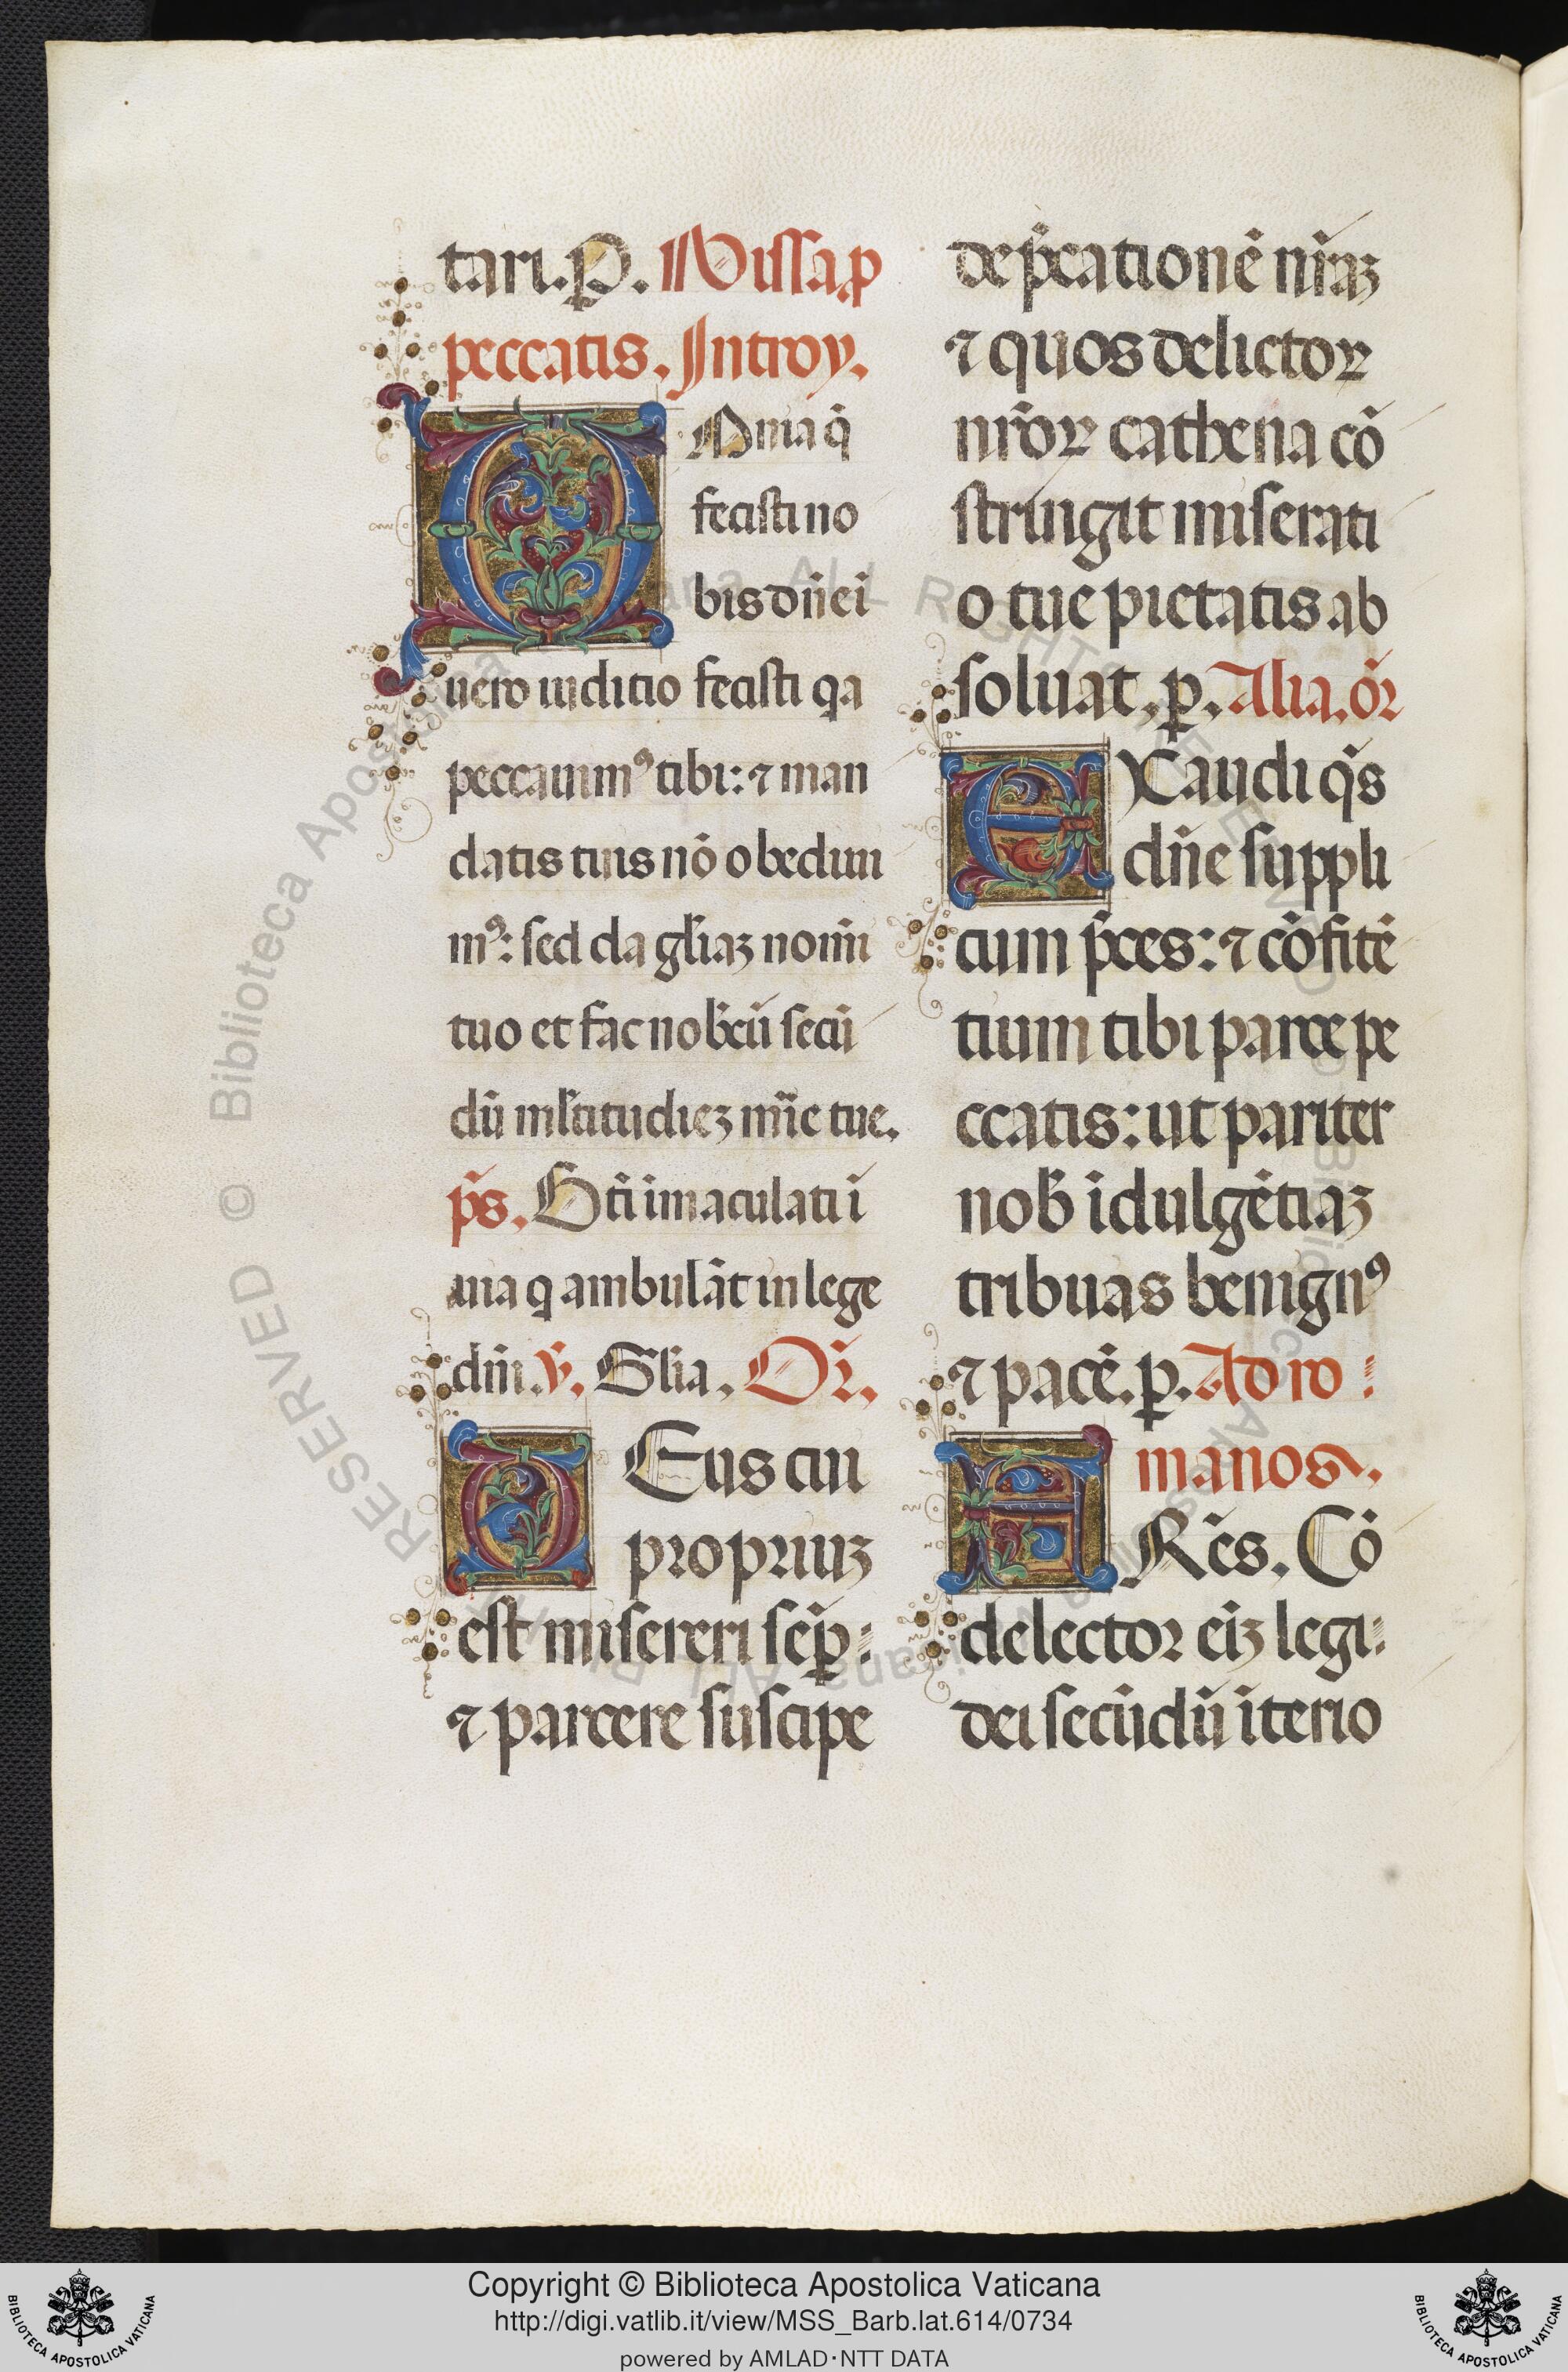 tari. P. Missa ꝓ
peccatis. Introy.
OMnia q̄
fecisti no
bis dn̄e ī
uero iuditio fecisti qa
peccauimꝰ tibi: ⁊ man
datis tuis nō obediui
mꝰ: sed da gl̄iaꝫ nomī
tuo et fac nob̄cū secū
dū ml̄titudieꝫ mīe tue.
p̄s. Bt̄i īmaculati ī
uia q ambulāt in lege
dn̄i. ꝟ. Gl̄ia. Or̄.
DEus cui
propriuꝫ
est misereri sēꝑ:
⁊ parcere suscipe
dep̄cationē nr̄aꝫ
⁊ quos delictoꝝ
nr̄oꝝ cathena cō
stringit miserati
o tue pietatis ab
soluat. ꝑ. Alia. or̄
EXaudi q̄s
dn̄e suppli
cum p̄ces: ⁊ cōfitē
tium tibi parce pe
ccatis: ut pariter
nob̄ īdulgētiaꝫ
tribuas benignꝰ
⁊ pacē. ꝑ. Ad ro:
manos.
FR̄es. Cō
delector eīꝫ legi:
dei secūdū īterio
© Biblioteca Apostolica Vaticana ALL RIGHTS RESERVED
Copyright © Biblioteca Apostolica Vaticana
http://digi.vatlib.it/view/MSS_Barb.lat.614/0734
powered by AMLAD·NTT DATA
BIBLIOTECA APOSTOLICA VATICANA
BIBLIOTECA APOSTOLICA VATICANA